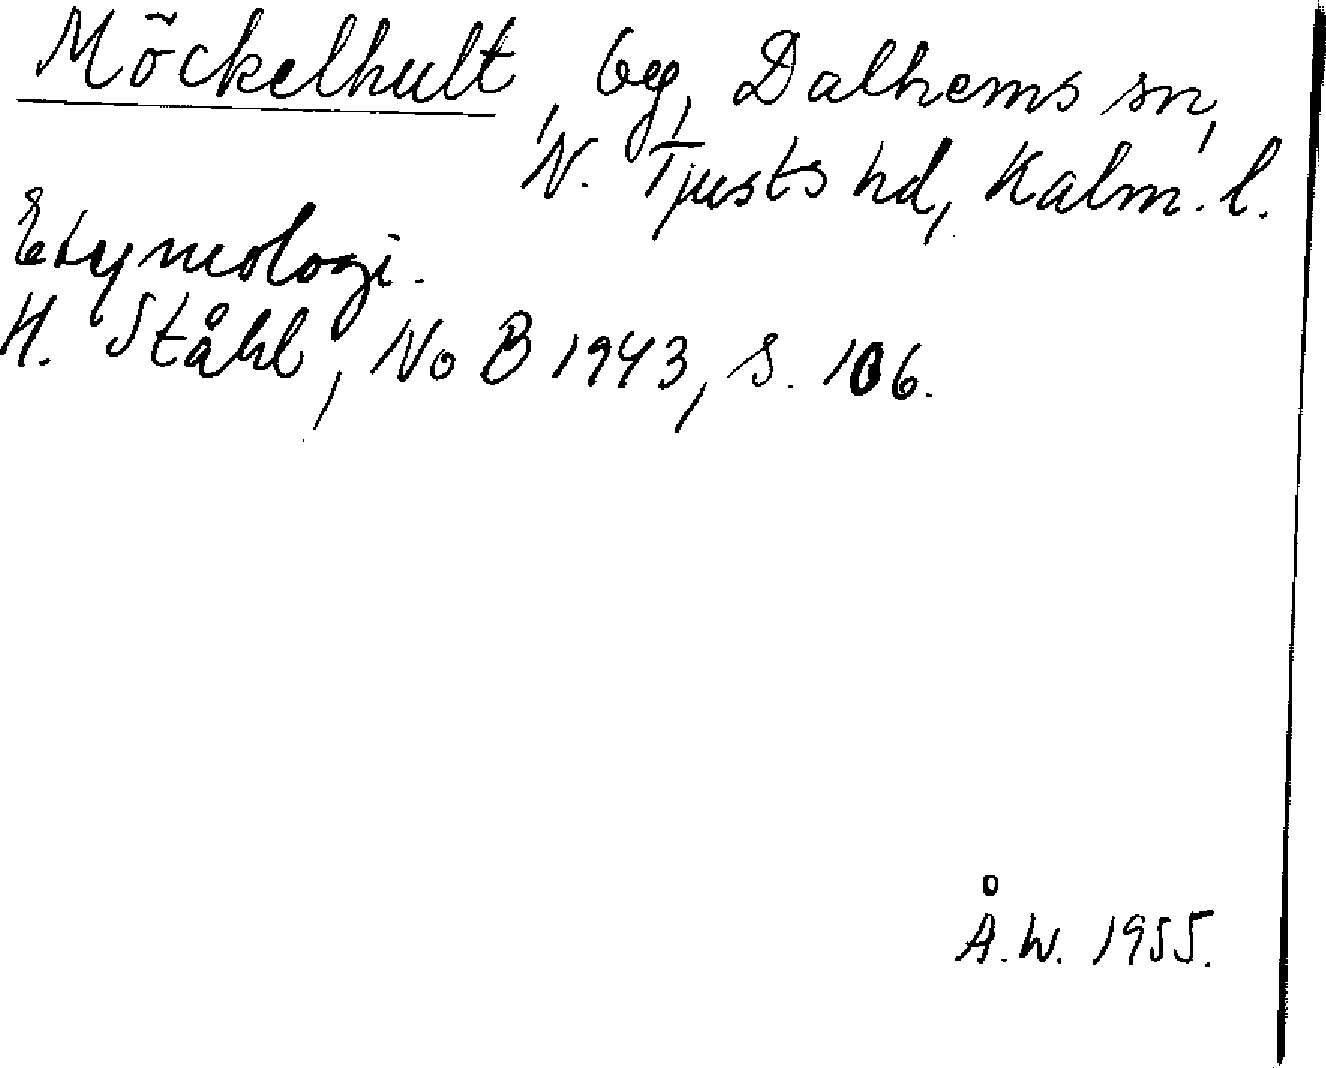 Möckelhult, by, Dalhems sn,
N. Tjusts hd, Kalm. l.
Etymologi.
H. Ståhl, NoB 1943, s. 106.
Å.W. 1955.